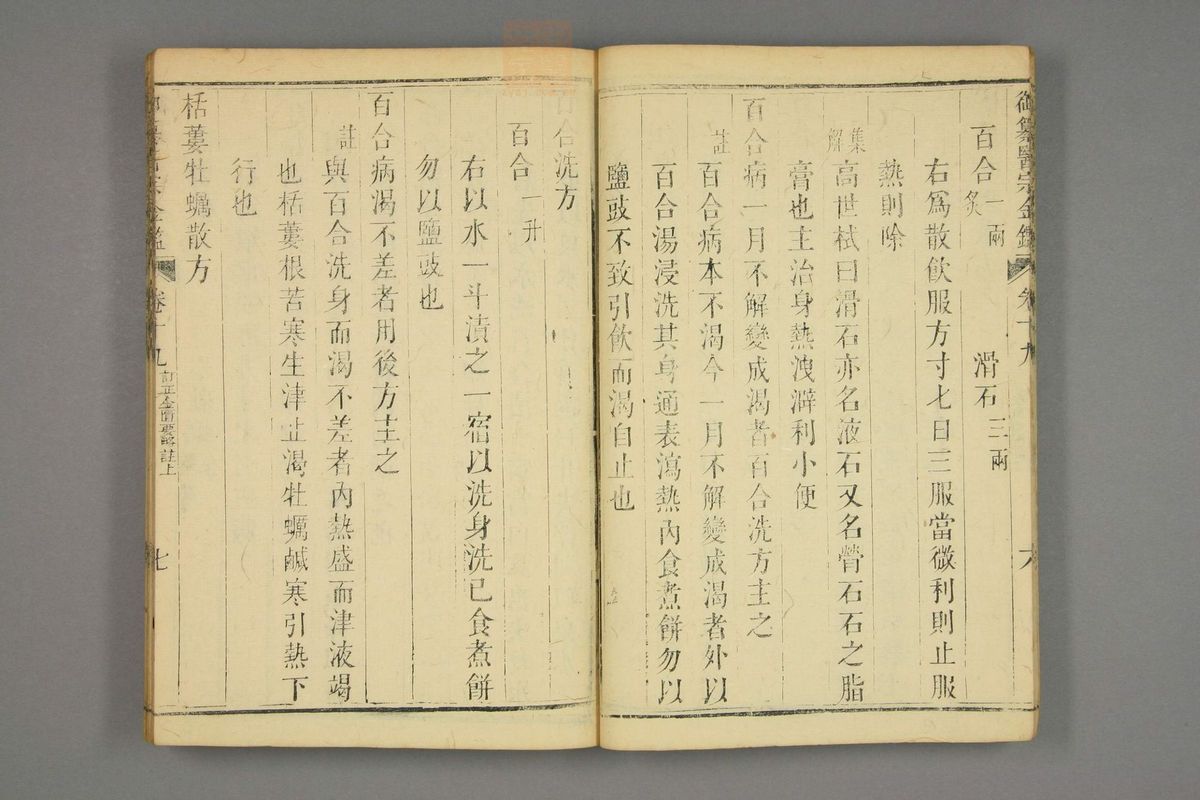 御纂醫宗金鑑 卷十九 六
百合一兩炙 滑石三兩
右爲散飲服方寸七日三服當微利則止服
熱則除
集解 高世栻曰滑石亦名液石又名膋石石之脂
膏也主治身熱洩澼利小便
百合病一月不解變成渴者百合洗方主之
註 百合病本不渴今一月不解變成渴者外以
百合湯浸洗其身通表瀉熱內食煮餅勿以
鹽豉不致引飲而渴自止也
百合洗方
百合一升
右以水一斗漬之一宿以洗身洗已食煮餅
勿以鹽豉也
百合病渴不差者用後方主之
註 與百合洗身而渴不差者內熱盛而津液竭
也栝蔞根苦寒生津止渴牡蠣鹹寒引熱下
行也
栝蔞牡蠣散方
卷十九 訂正金匱要略註上 七